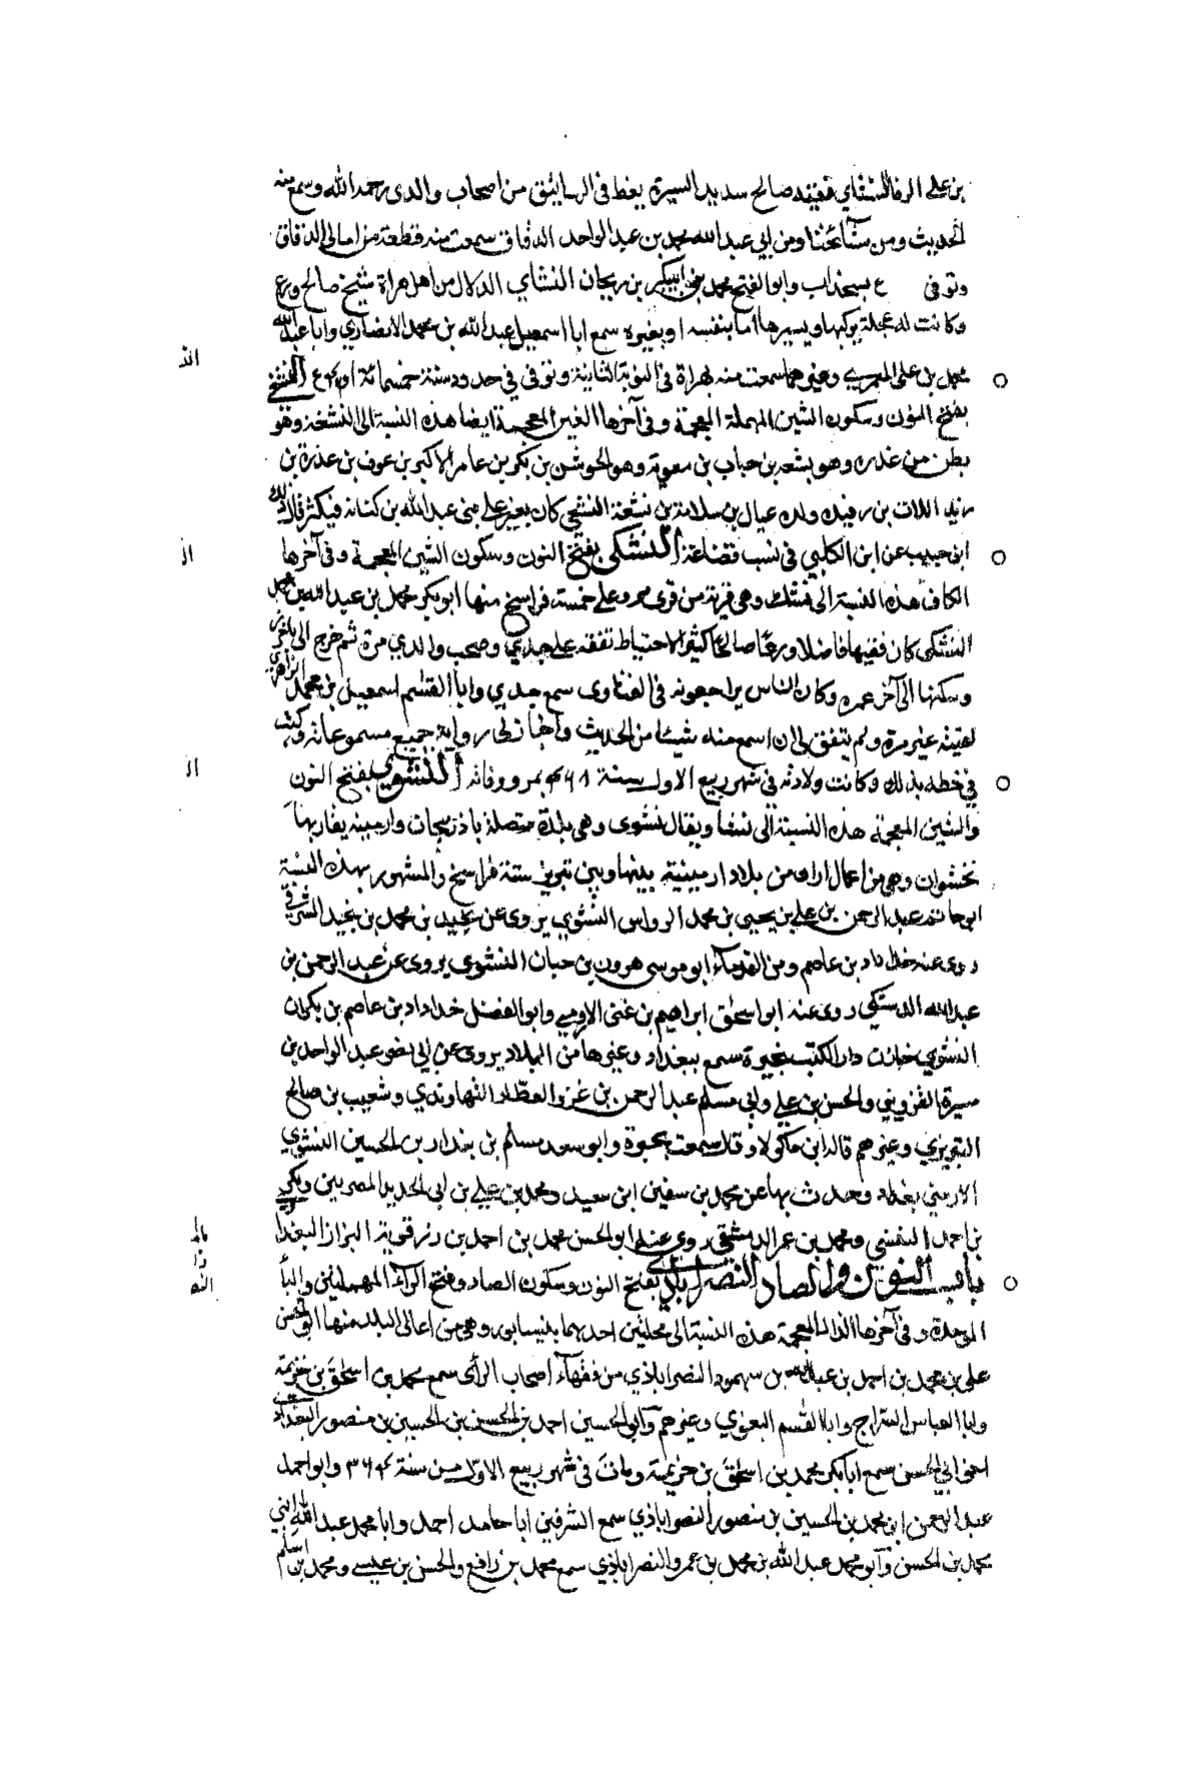 بن على الرفا النشاي فقيه صالح سديد السيرة يعظ فى الرساتيق من اصحاب والدى رحمه الله وسمع منه
الحديث ومن مشائخنا ومن ابي عبد الله محمد بن عبد الواحد الدقاق سمعت منه قطعة من امالى الدقاق
وتوفى ع بسنجذاب وابو الفتح محمد بن ابي بكر بن ريحان النشاي الدلال من اهل هراة شيخ صالح ورع
وكانت له عجلة يركبها ويسيرها اما بنفسه او بغيره سمع ابا اسمعيل عبد الله بن محمد الانصاري وابا عبد الله
محمد بن على العمري وغيرهما سمعت منه بهراة فى النوبة الثانية وتوفى فى حدود سنة خمسمائة او ع النشغى
بفتح النون وسكون الشين المهملة المعجمة وفى آخرها الغين المعجمة ايضا هذه النسبة الى النشغة وهو
بطن من عذره وهو بشعه بن حباب بن معوية وهو الحوشن بن بكر بن عامر الاكبر بن عوف بن عذرة بن
زيد اللات بن رفيده ولده عيال بن سلامة بن نشغة النشغي كان يغير على بنى عبد الله بن كنانه فيكثر قال ذلك
ابن حبيب عن ابن الكلبي فى نسب قضاعة النشكى بفتح النون وسكون الشين المعجمة وفى آخرها
الكاف هذه النسبة الى نشك وهى قرية من قرى مرو على خمسة فراسخ منها ابو بكر محمد بن عبد الله بن محمد
النشكى كان فقيها فاضلا ورعا صالحا كثير الاحتياط تفقه على جدي وصحب والدي مرة ثم خرج الى
وسكنها الى آخر عمره وكان الناس يراجعونه فى الفتاوى سمع جدي وابا القسم اسمعيل بن محمد الزاهري
لقيته غير مرة ولم يتفق لى ان اسمع منه شيئا من الحديث واجاز لى رواية جميع مسموعاته وكتب
فى خطه بذلك وكانت ولادته فى شهر ربيع الاول سنة ٤٦١ بمرو ووفاته النشوي بفتح النون
والشين المعجمة هذه النسبة الى نشا ويقال نشوى وهى بلدة متصلة باذربيجان وارمينه يقاربها
نخشوان وهى من اعمال اران من بلاد ارمينية بينها وبين تبريز ستة فراسخ والمشهور بهذه النسبة
ابو حاتم عبد الرحمن بن على بن يحيى بن محمد الرواس النشوي يروى عن بجيد بن محمد بن بجيد الشرفى
روى عنه خذاداد بن عاصم ومن القدماء ابو موسى هرون بن حبان النشوى يروى عن عبد الرحمن بن
عبد الله الدشتكي روى عنه ابو اسحق ابراهيم بن غنى الارمى وابو الفضل خداداد بن عاصم بن بكران
النشوي خازن دار الكتب بجنزة سمع ببغداد وغيرها من البلاد يروى عن ابي نصر عبد الواحد بن
ميسرة القزويني والحسن بن على وابى مسلم عبد الرحمن بن غزو العطار النهاوندي وشعيب بن صالح
التبريزي وغيرهم قال ابن ماكولا وقد سمعت بجنزة وابو سعد مسلم بن بغداد بن الحسين النشوي
الارميني بغداد وحدث بها عن محمد بن سفين ابن سعيد ومحمد بن على بن ابى الحديد المصريين وبكر
بن احمد النفسي ومحمد بن عمر الدمشقي روى عنه ابو الحسن محمد بن احمد بن رزقوية البزاز البغدا
باب النون والصاد النصراباذي بفتح النون وسكون الصاد وفتح الراء المهملتين والبا
الموحدة وفى آخرها الذال المعجمة هذه النسبة الى محلتين احداهما بنيسابور وهى من اعالى البلد منها ابو الحسن
على بن محمد بن احمد بن عبد الله بن سهمود النصراباذي من فقهاء اصحاب الرأى سمع محمد بن اسحق بن خزيمة
وابا العباس السراج وابا القسم البغوي وغيرهم وابو الحسين احمد بن الحسن بن الحسين بن منصور البغدادي
اخى ابي الحسن سمع ابا بكر محمد بن اسحق بن خزيمة ومات فى شهر ربيع الاول من سنة ٣٦٤ وابو احمد
عبد الرحمن ابن محمد بن الحسين بن منصور النصراباذي سمع الشرفين ابا حامد احمد وابا محمد عبد الله ابني
محمد بن الحسن وابو محمد عبد الله بن محمد بن عمرو النصراباذي سمع محمد بن رافع والحسن بن عيسى ومحمد بن اسلم